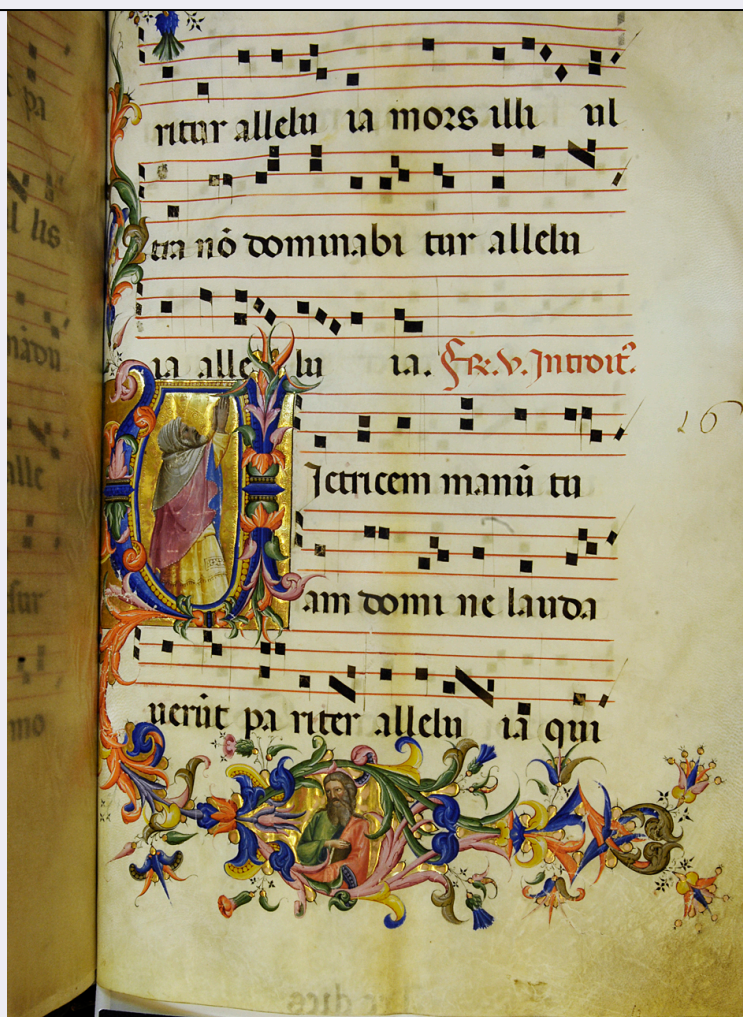 ritur allelu ia mors illi ul
tra nō dominabi tur allelu
ia alle lu ia. Fr. V. Introit̄.
Victricem manū tu
16
am domi ne lauda
uerūt pa riter allelu ia qui
pa
l lis
alle
mo